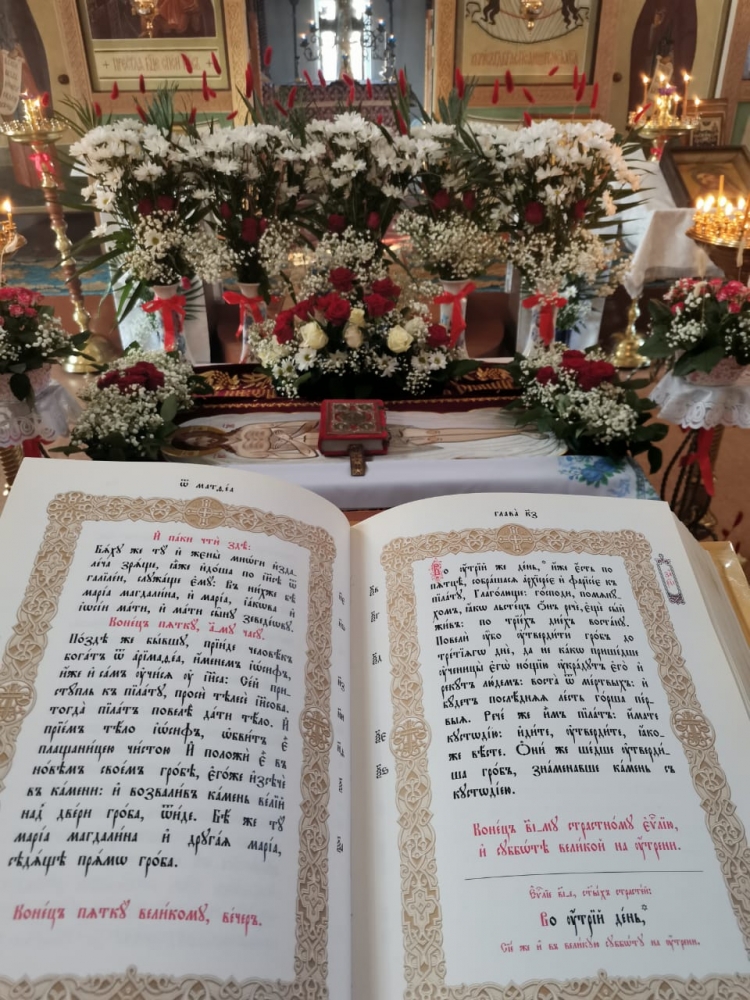 Ѿ матѳеа
И҆ паки чтѝ здѣ:
Бѧ́хꙋ же тꙋ̀ и҆ жєны̀ мнѡ́ги и҆зда-
ле́ча зрѧ́щѧ, ꙗ҆̀же и҆до́ша по і҆и҃сѣ ѿ
галїле́и, слꙋжа́щѧ є҆мꙋ̀: Въ ни́хже бѣ̀
марі́а магдали́на и҆ марі́а, і҆а́кѡва и҆
і҆ѡсі́и ма́ти, и҆ ма́ти сы́нꙋ зеведе́ѡвꙋ.
Коне́цъ пѧткꙋ̀, а҃-мꙋ часꙋ̀.
По́здѣ же бы́вшꙋ, прїи́де человѣ́къ
бога́тъ ѿ а҆рїмаѳе́а, и҆́менемъ і҆ѡ́сифъ,
и҆́же и҆ са́мъ ᲂу҆чи́сѧ ᲂу҆ і҆и҃са: Се́й при-
стꙋ́пль къ пїла́тꙋ, просѝ тѣлесѐ і҆и҃сова.
тогда̀ пїла́тъ повелѣ̀ да́ти тѣ́ло. И҆
прїе́мъ тѣ́ло і҆ѡ́сифъ, ѡ҆бви́тъ є҆̀
плащани́цею чи́стою И҆ положѝ є҆̀ въ
но́вѣмъ свое́мъ гро́бѣ, є҆го́же и҆зсѣчѐ
въ ка́мени: и҆ возвали́въ ка́мень ве́лїй
над̾ две́ри гро́ба, ѿи́де. Бѣ́ же тꙋ̀
марі́а магдали́на и҆ дрꙋга́ѧ марі́а,
сѣдѧ́щѣ прѧ́мѡ гро́ба.
Коне́цъ пѧткꙋ̀ вели́комꙋ, ве́черъ.
глава̀ к҃з
Во ᲂу҆́трїй же де́нь, и҆́же є҆́сть по
пѧтцѣ̀, собра́шасѧ а҆рхїере́є и҆ фарїсе́є къ
пїла́тꙋ, Глаго́люще: го́споди, помѧнꙋ́-
хомъ, ꙗ҆́кѡ льсте́цъ ѻ҆́нъ речѐ, є҆щѐ сы́й
жи́въ: по трїе́хъ дне́хъ воста́нꙋ.
Повелѝ ᲂу҆̀бо ᲂу҆тверди́ти гро́бъ до
тре́тїѧгѡ днѐ, да не ка́кѡ прише́дше
ᲂу҆ченицы̀ є҆гѡ̀ но́щїю ᲂу҆кра́дꙋтъ є҆го̀ и҆
рекꙋ́тъ лю́демъ: воста̀ ѿ ме́ртвыхъ: и҆
бꙋ́детъ послѣ́днѧѧ ле́сть го́рша пе́р-
выѧ. Рече́ же и҆̀мъ пїла́тъ: и҆́мате
кꙋстѡді́ю: и҆ди́те, ᲂу҆тверди́те, ꙗ҆́ко-
же вѣ́сте. Ѻ҆ни́ же ше́дше ᲂу҆тверди́-
ша гро́бъ, зна́менавше ка́мень съ
кꙋстѡді́ею.
Коне́цъ в҃і-мꙋ страстно́мꙋ є҆ѵⷢ҇лїю,
и҆ сꙋббѡ́тѣ вели́кой на ᲂу҆́трени.
Є҆ѵⷢ҇лїе в҃і-є, ст҃ы́хъ страсте́й:
Во ᲂу҆́трїй де́нь,
Сїѐ же и҆ въ вели́кꙋю сꙋббѡ́тꙋ на ᲂу҆́трени.